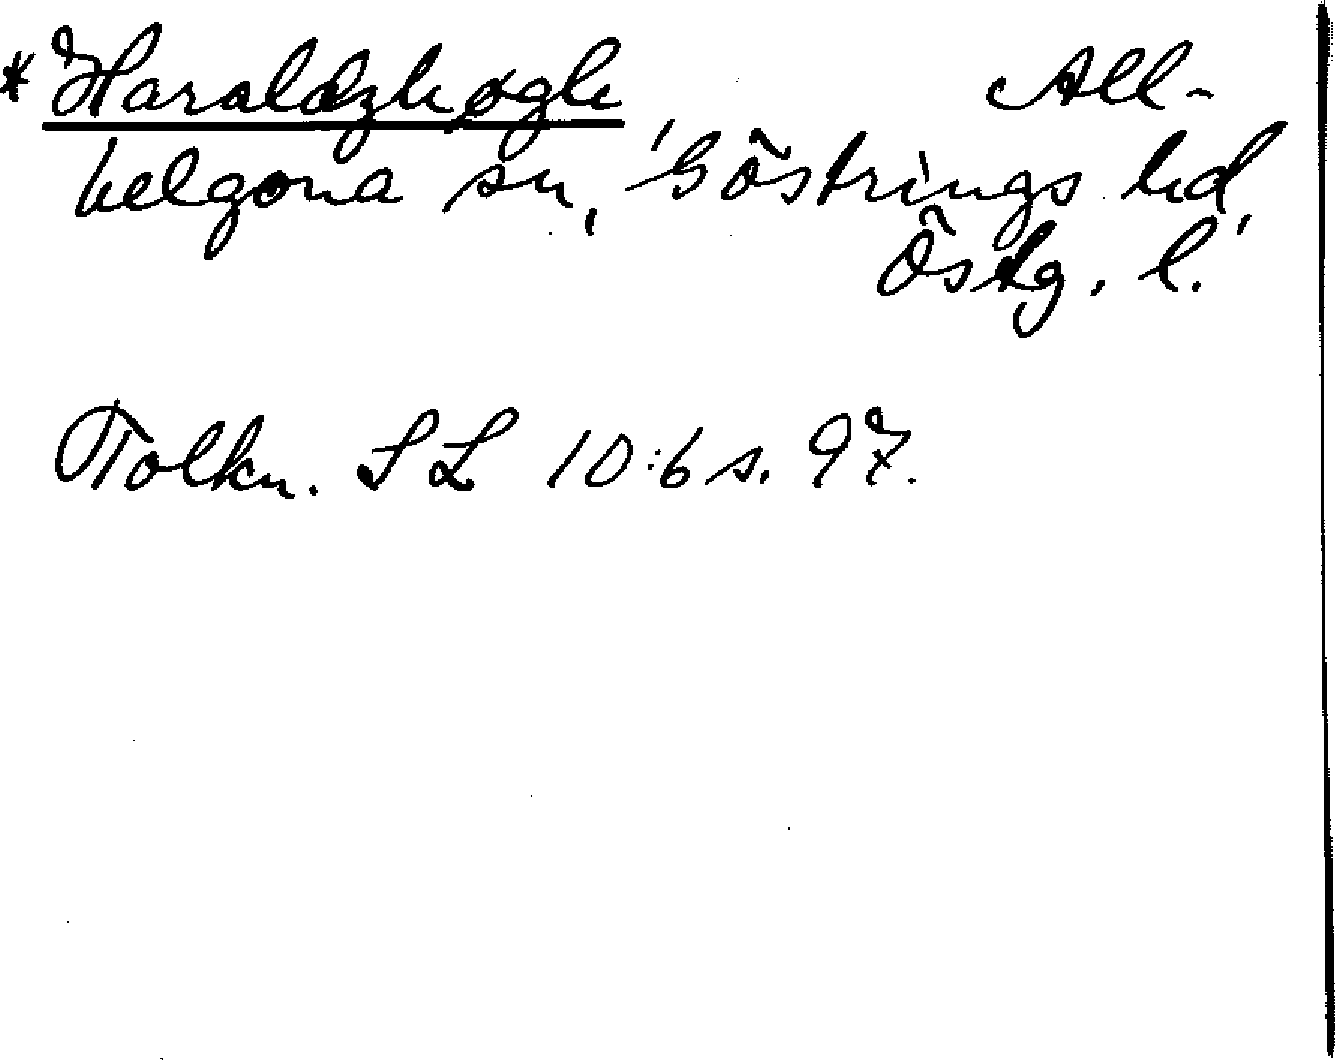 * Haraldzhøgh All-
helgona sn, Göstrings hd,
Östg. l.
Tolkn. SL 10:6 s. 97.